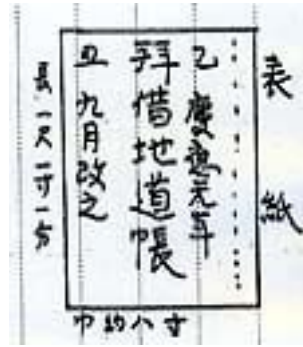 表紙
乙 慶應元年
拜借地道帳
丑 九月改之
長一尺一寸一分
巾約八寸